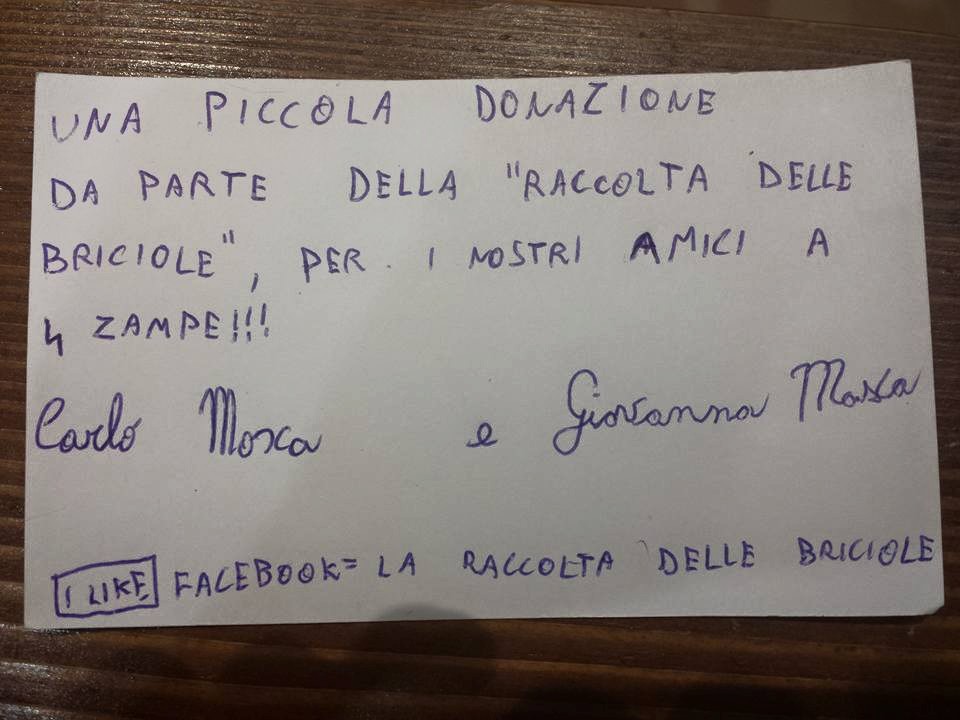 UNA PICCOLA DONAZIONE
DA PARTE DELLA "RACCOLTA DELLE
BRICIOLE", PER I NOSTRI AMICI A
4 ZAMPE!!!
Carlo Mosca e Giovanna Mosca
I LIKE FACEBOOK= LA RACCOLTA DELLE BRICIOLE